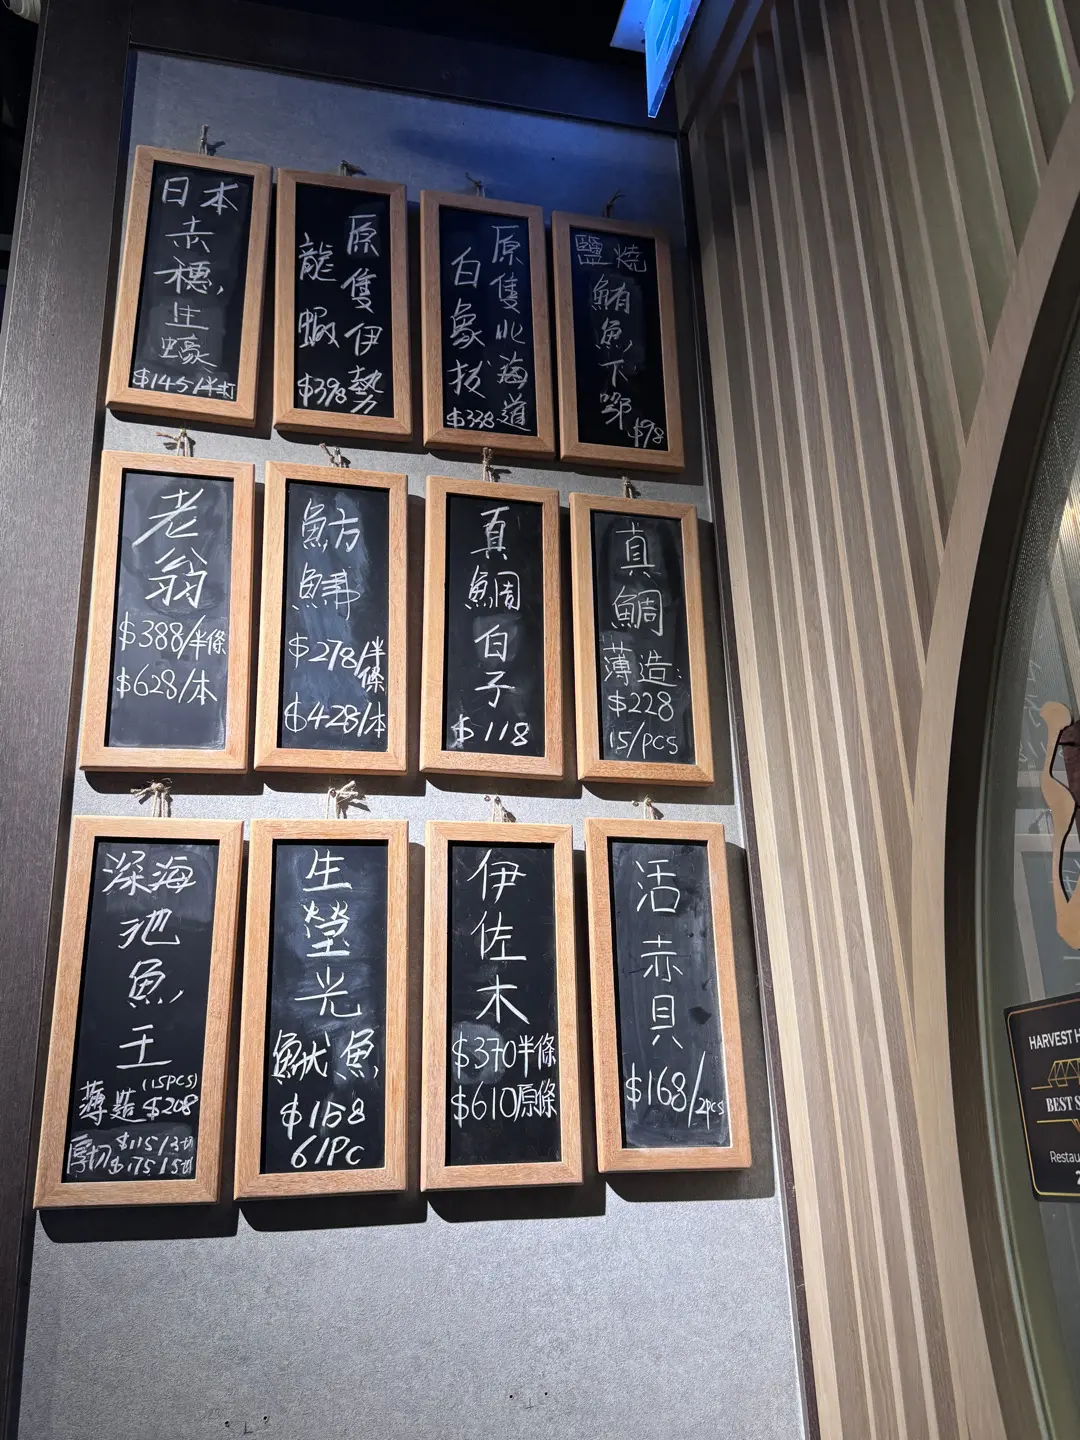 日本
赤
穗
生
蠔
$145/半打
原隻伊勢
龍蝦
$398
原隻北海道
白象拔
$338
鹽燒
鮪
魚
下
$98
老
翁
$388/半條
$628/本
魴
鮄
$278/半條
$428/本
真
鯛
白
子
$118
真
鯛
薄造:
$228
15/pcs
深海
池
魚
王
(15PCS)
薄造 $208
厚切 $115/3切
$175/5切
生
螢
光
魷魚
$158
6/PC
伊
佐
木
$370半條
$610原條
活
赤
貝
$168/2pcs
HARVEST H
BEST S
Restau